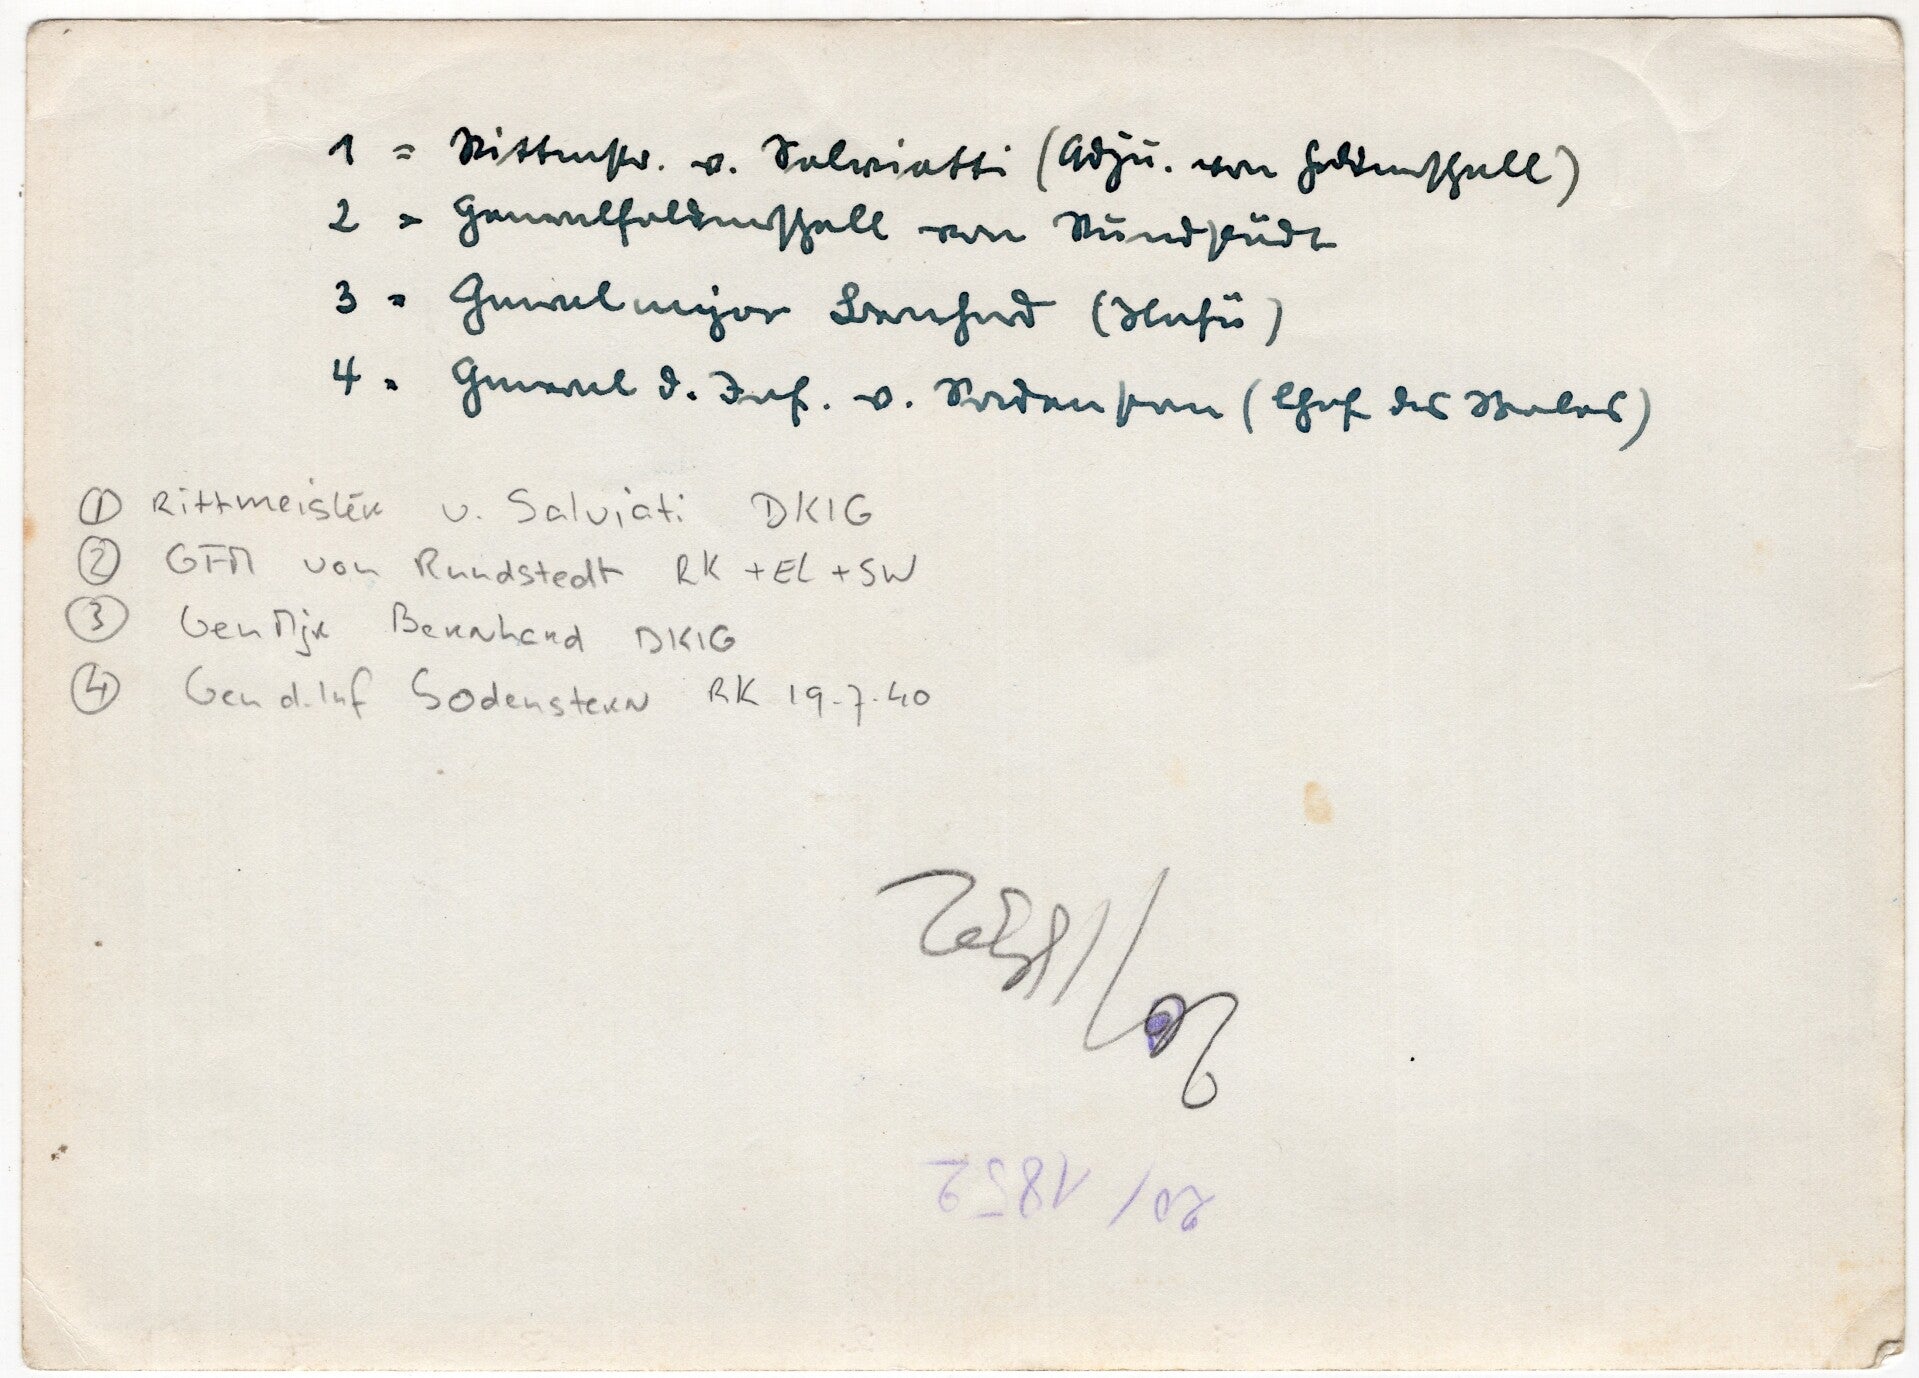 1 = Rittmstr. v. Salviatti (Adju. von Feldmarschall)
2 = Generalfeldmarschall von Rundstädt
3 = Generalmajor Bernhard (Nafü)
4 = General d. Inf. v. Sodenstern (Chef des Stabes)
① Rittmeister v. Salviati DKIG
② GFM von Rundstedt RK + EL + SW
③ GenMjr Bernhard DKIG
④ Gen d. Inf Sodenstern RK 19.7.40
20/ 1852